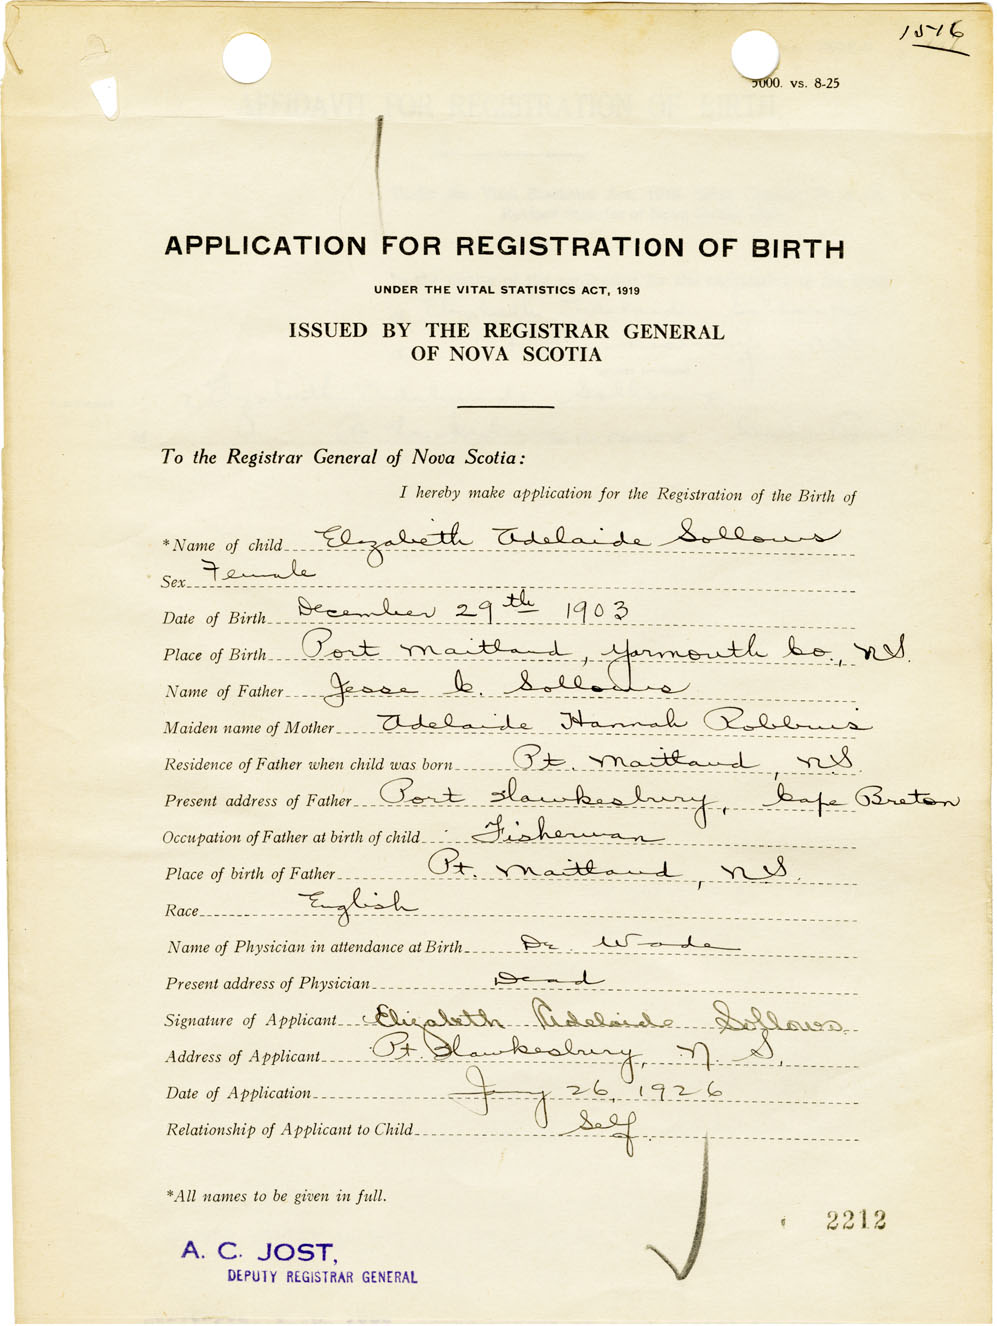 1516
5000. vs. 8-25
APPLICATION FOR REGISTRATION OF BIRTH
UNDER THE VITAL STATISTICS ACT, 1919
ISSUED BY THE REGISTRAR GENERAL
OF NOVA SCOTIA
To the Registrar General of Nova Scotia:
I hereby make application for the Registration of the Birth of
*Name of child Elizabeth Adelaide Sollows
Sex Female
Date of Birth December 29th 1903
Place of Birth Port Maitland, Yarmouth Co., N.S.
Name of Father Jesse C. Sollows
Maiden name of Mother Adelaide Hannah Robbins
Residence of Father when child was born Pt. Maitland, N.S.
Present address of Father Port Hawkesbury, Cape Breton
Occupation of Father at birth of child Fisherman
Place of birth of Father Pt. Maitland, N.S.
Race English
Name of Physician in attendance at Birth Dr. Wade
Present address of Physician Dead
Signature of Applicant Elizabeth Adelaide Sollows
Address of Applicant Pt. Hawkesbury, N.S.
Date of Application Jany 26, 1926
Relationship of Applicant to Child Self.
*All names to be given in full.
2212
A. C. JOST,
DEPUTY REGISTRAR GENERAL